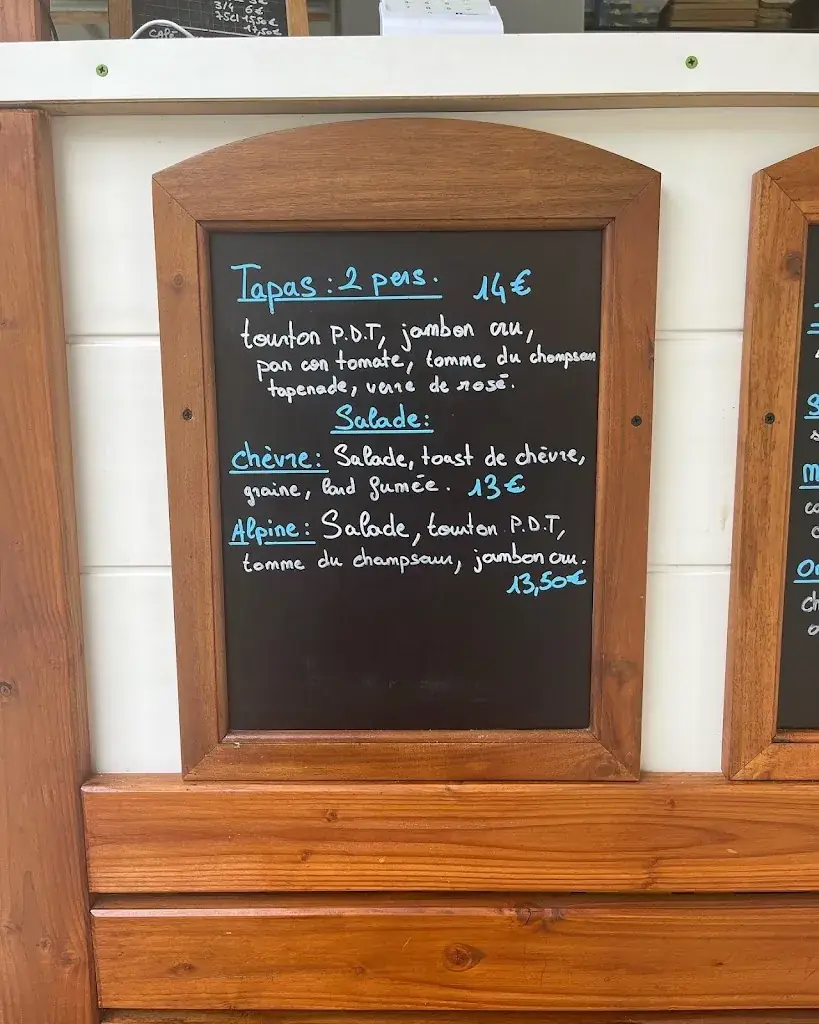 3/4 6€
75cl 15,50€
17,50€
CAFÉ
Tapas : 2 pers. 14€
tourton P.D.T, jambon cru,
pan con tomate, tomme du champsaur
tapenade, verre de rosé.
Salade:
Chèvre: Salade, toast de chèvre,
graine, lard fumée. 13€
Alpine: Salade, tourton P.D.T,
tomme du champsaur, jambon cru.
13,50€